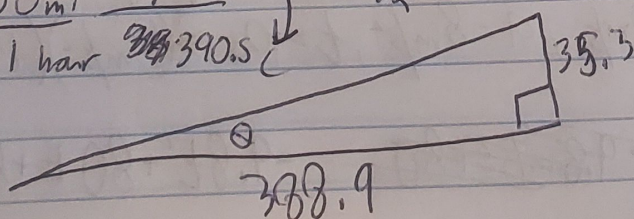 0mi
1 hour 390.5 C
35.3
θ
388.9